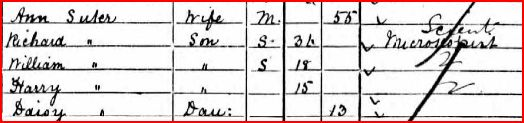 Ann Suter Wife M. 55
Scient
Richard " Son S. 31 Microscopist
William " " S 18
Harry " " 15
Daisy " Dau: 13